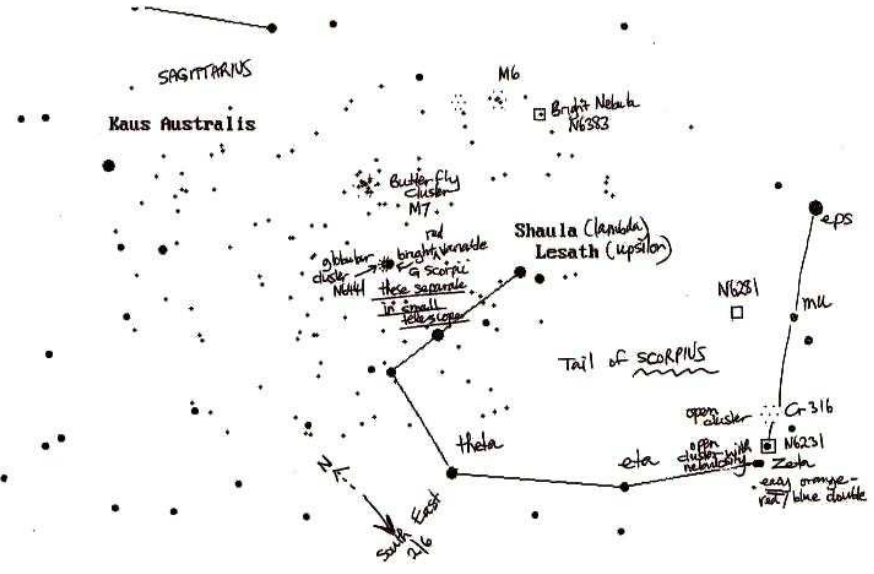 SAGITTARIUS
M6
Bright Nebula
N6383
Kaus Australis
Butterfly
cluster
M7
Shaula (lambda)
Lesath (upsilon)
eps
globular
cluster
N6441
red
bright variable
G Scorpii
these separate
in small
telescope
N6281
mu
Tail of SCORPIUS
open
cluster
Cr 316
theta
eta
open
cluster with
nebulosity
N6231
Zeta
easy orange-
red/blue double
N
South East
2/6